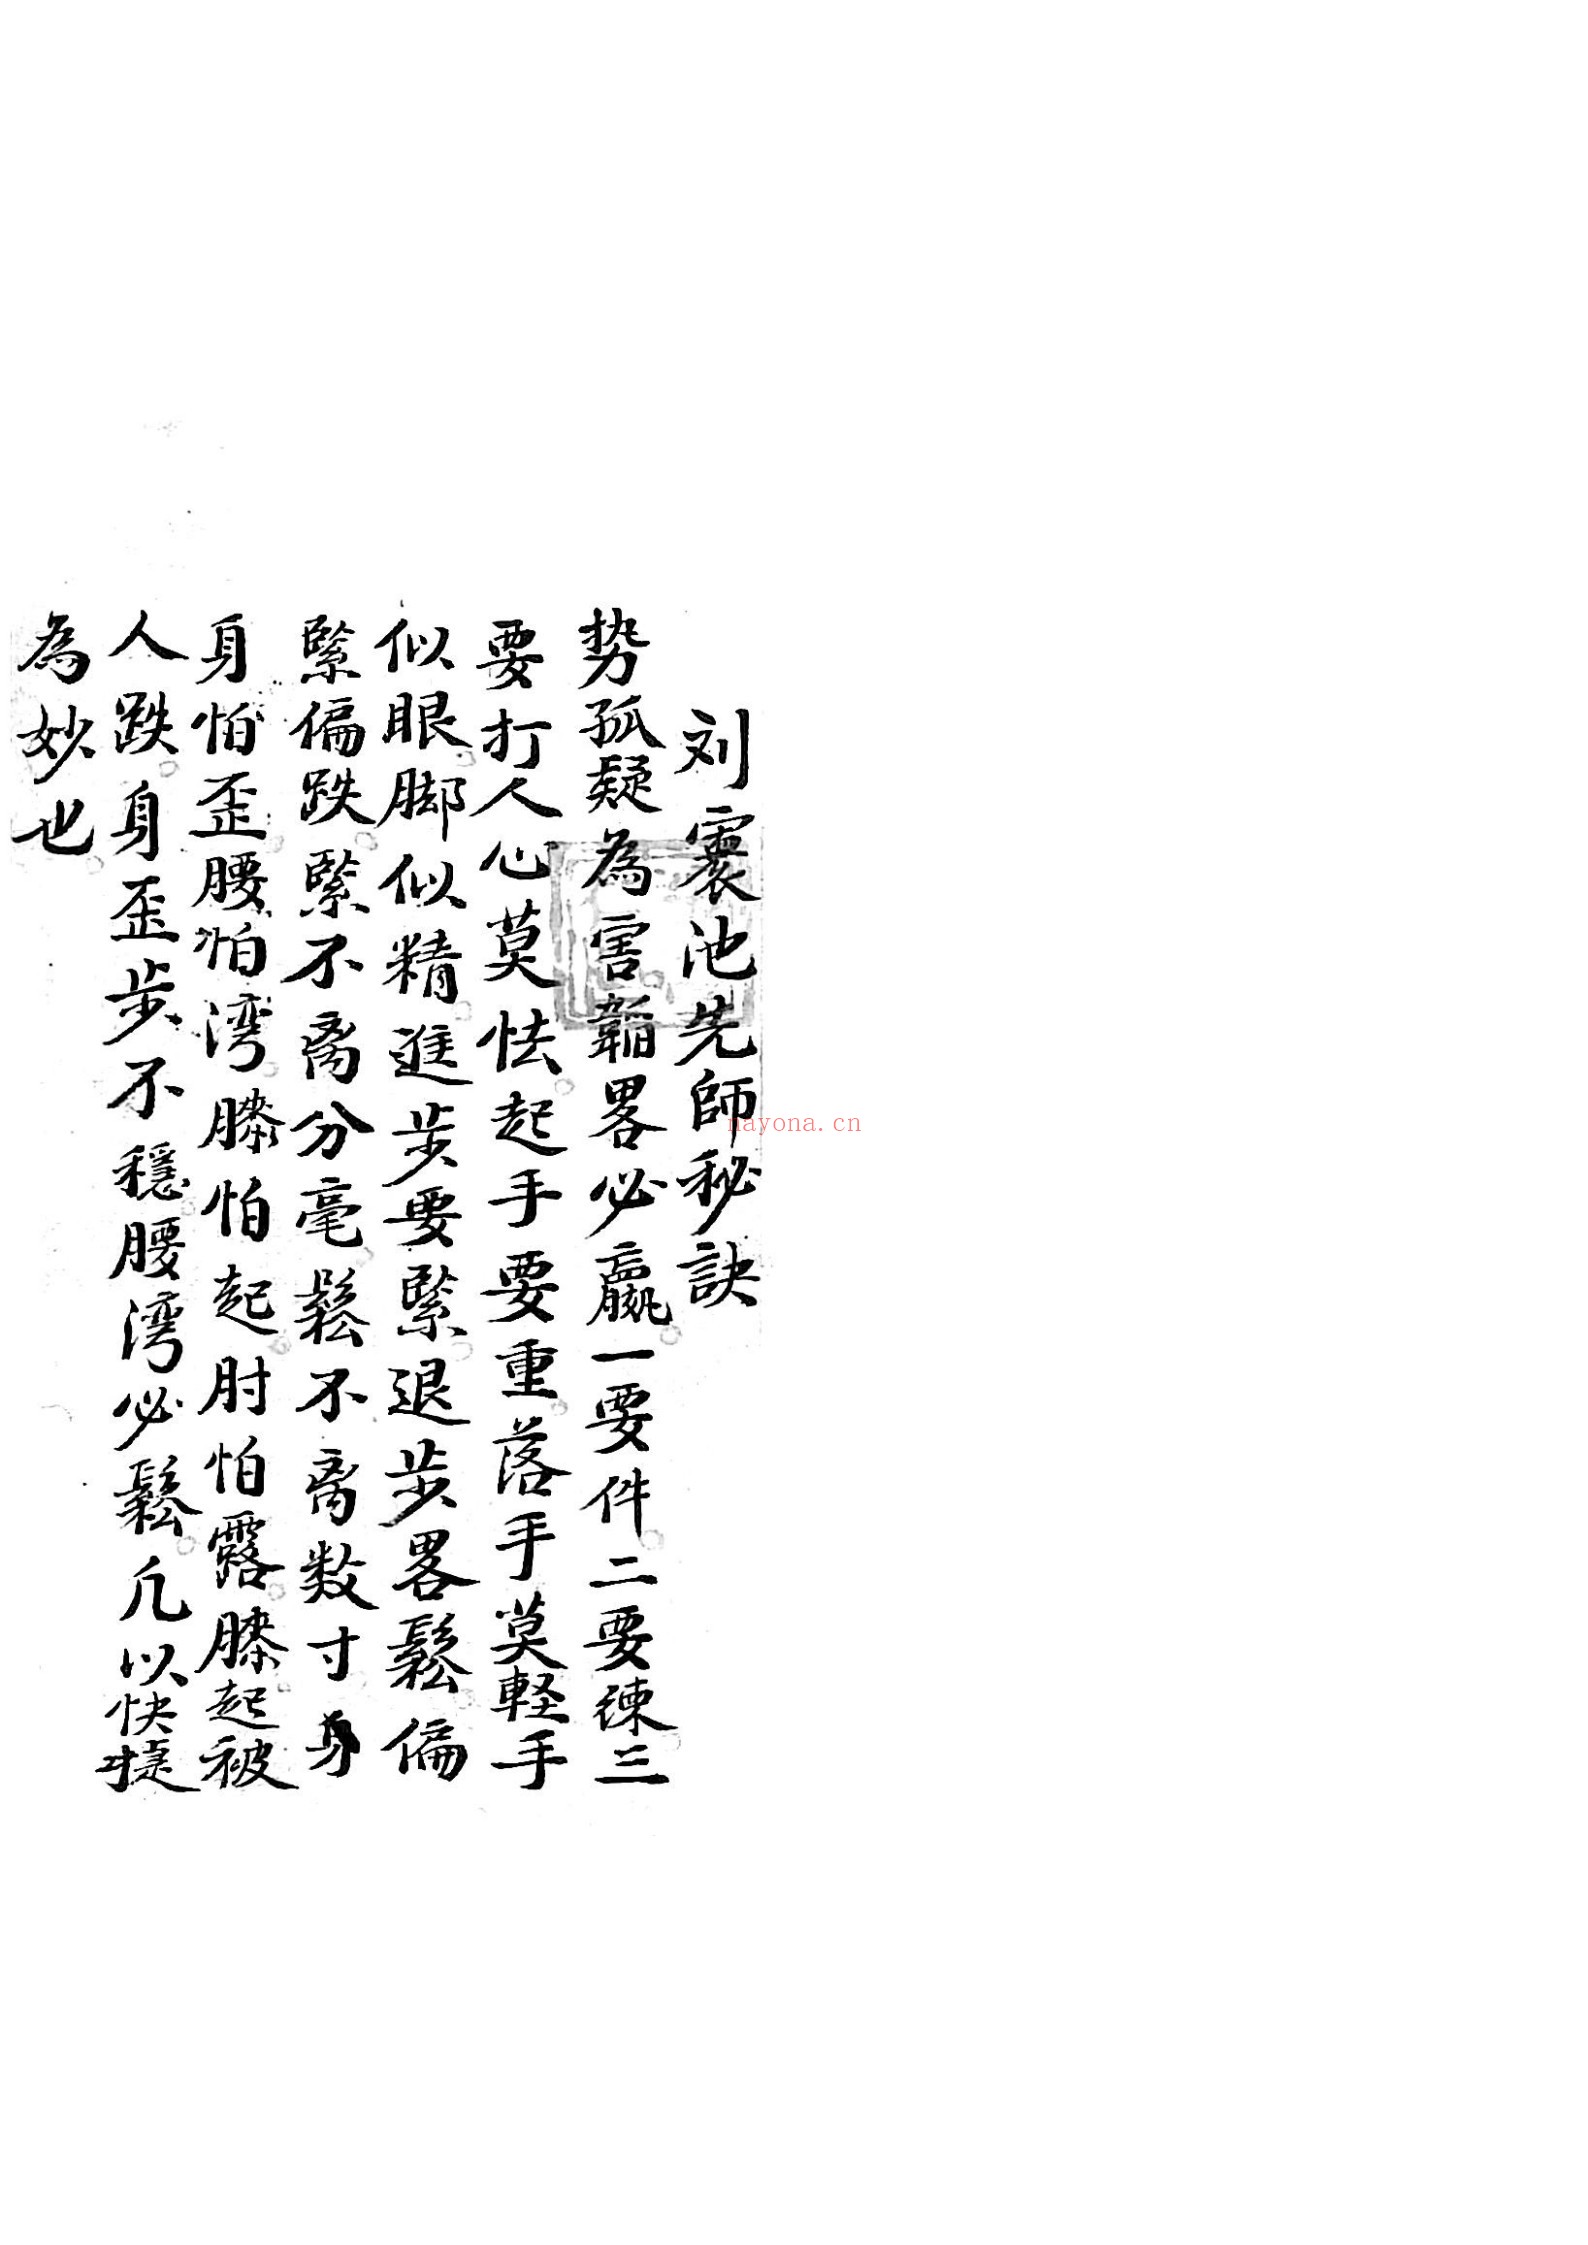 刘震池先師秘訣
势孤疑為害韜畧必贏一要件二要練三
要打人心莫怯起手要重落手莫軽手
似眼脚似精進步要緊退步畧鬆偏
緊偏跌緊不离分毫鬆不离数寸身
身怕歪腰怕湾膝怕起肘怕露膝起被
人跌身歪步不穩腰湾必鬆凢以快捷
為妙也
nayona.cn